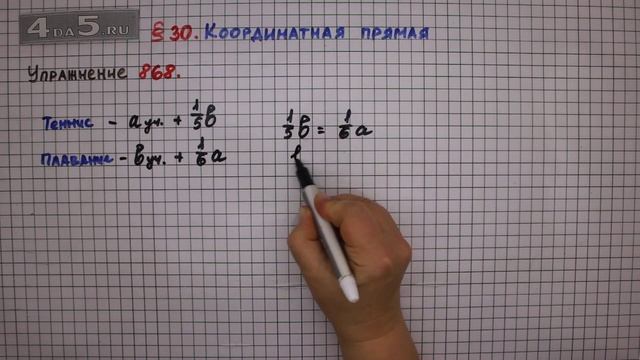 4DA5.RU
§ 30. Координатная прямая
Упражнение 868.
Теннис - a уч. + 1/5 b
Плавание - b уч. + 1/6 a
1/5 b = 1/6 a